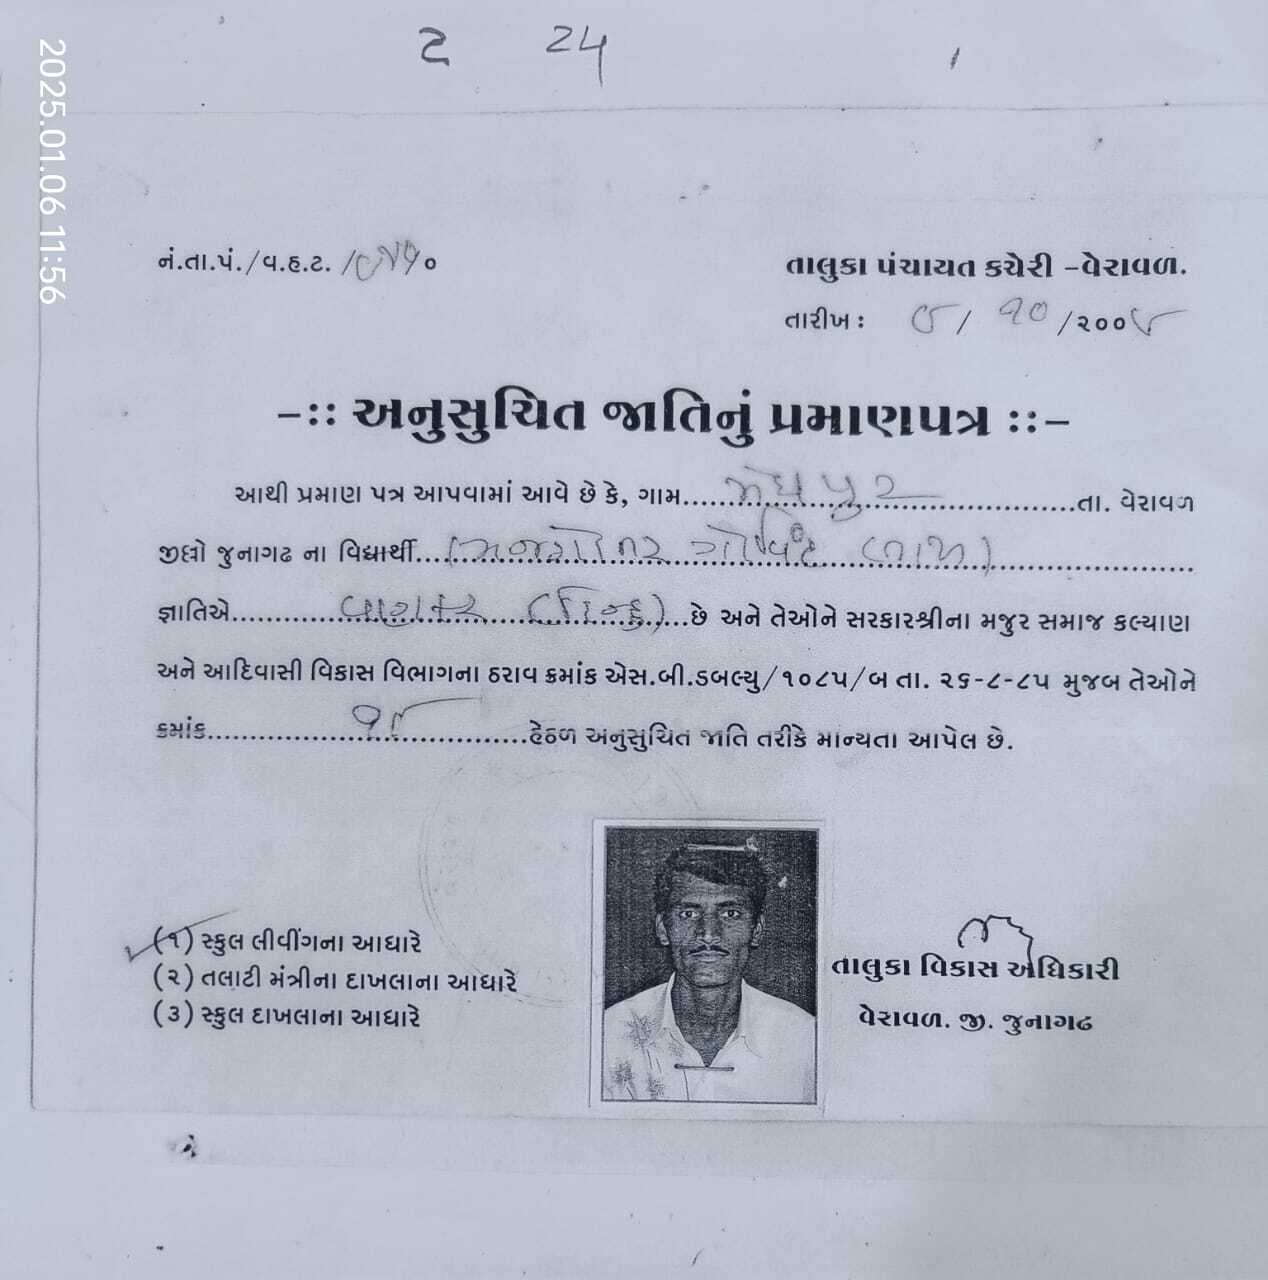 2025.01.06 11:56
2 24
નં.તા.પં./વ.હ.ટ. /
તાલુકા પંચાયત કચેરી -વેરાવળ.
તારીખ : ૯/ ૧૦ /૨૦૦૮
-:: અનુસુચિત જાતિનું પ્રમાણપત્ર ::-
આથી પ્રમાણ પત્ર આપવામાં આવે છે કે, ગામ.....મેઘપુર.....તા. વેરાવળ
જીલ્લો જુનાગઢ ના વિદ્યાર્થી.....ગોવિંદ.....
જ્ઞાતિએ.....વણકર (હિન્દુ)...છે અને તેઓને સરકારશ્રીના મજુર સમાજ કલ્યાણ
અને આદિવાસી વિકાસ વિભાગના ઠરાવ ક્રમાંક એસ.બી.ડબલ્યુ/૧૦૮૫/બ તા. ૨૬-૮-૮૫ મુજબ તેઓને
ક્રમાંક..........હેઠળ અનુસુચિત જાતિ તરીકે માન્યતા આપેલ છે.
(૧) સ્કુલ લીવીંગના આધારે
(૨) તલાટી મંત્રીના દાખલાના આધારે
(૩) સ્કુલ દાખલાના આધારે
તાલુકા વિકાસ અધિકારી
વેરાવળ. જી. જુનાગઢ